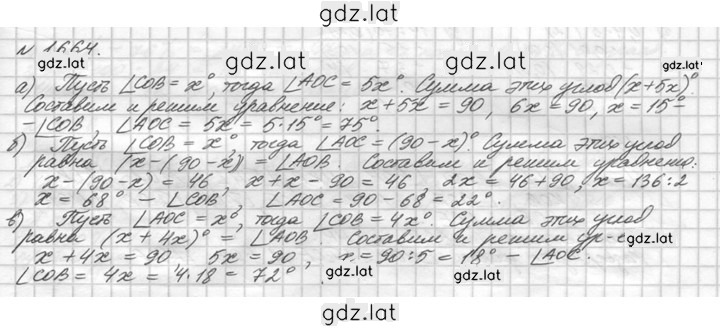 gdz.lat
N 1664.
gdz.lat gdz.lat gdz.lat
а) Пусть ∠COB = x°, тогда ∠AOC = 5x°. Сумма этих углов (x+5x)°.
Составим и решим уравнение: x+5x = 90, 6x = 90, x = 15° -
- ∠COB, ∠AOC = 5x = 5·15° = 75°.
gdz.lat gdz.lat
б) Пусть ∠COB = x°, тогда ∠AOC = (90-x)°. Сумма этих углов
равна (x-(90-x)) = ∠AOB. Составим и решим уравнение:
x-(90-x) = 46, x+x-90 = 46, 2x = 46+90, x = 136:2
gdz.lat gdz.lat gdz.lat
x = 68° - ∠COB, ∠AOC = 90-68 = 22°.
в) Пусть ∠AOC = x°, тогда ∠COB = 4x°. Сумма этих углов
равна (x+4x)° = ∠AOB. Составим и решим ур-е
gdz.lat gdz.lat
x+4x = 90, 5x = 90, x = 90:5 = 18° - ∠AOC.
∠COB = 4x = 4·18 = 72°
gdz.lat gdz.lat gdz.lat
gdz.lat